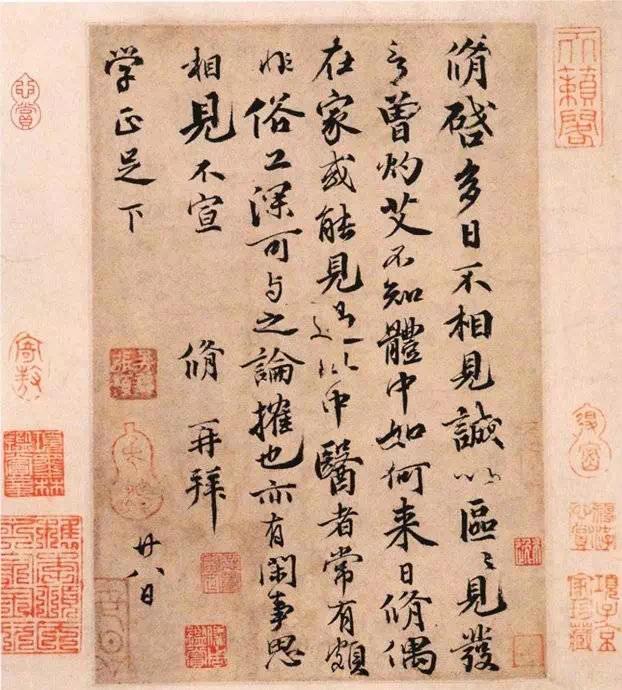 天籟閣
脩啓多日不相見誠以區〻見發
言曾灼艾不知體中如何来日脩偶
在家或能見過此中醫者常有頗
非俗工深可与之論搉也亦有閑事思
相見不宣 脩再拜 廿八日
学正足下
項子京家珍藏